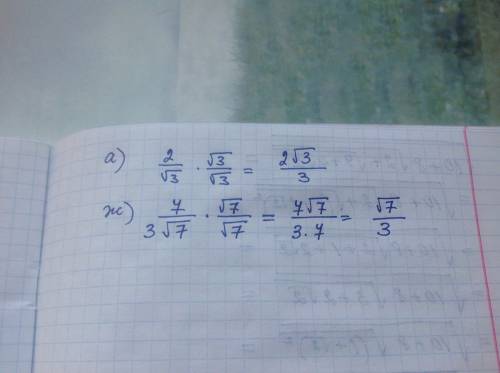 а) 2/√3 · √3/√3 = 2√3/3
ж) 7/3√7 · √7/√7 = 7√7/3·7 = √7/3